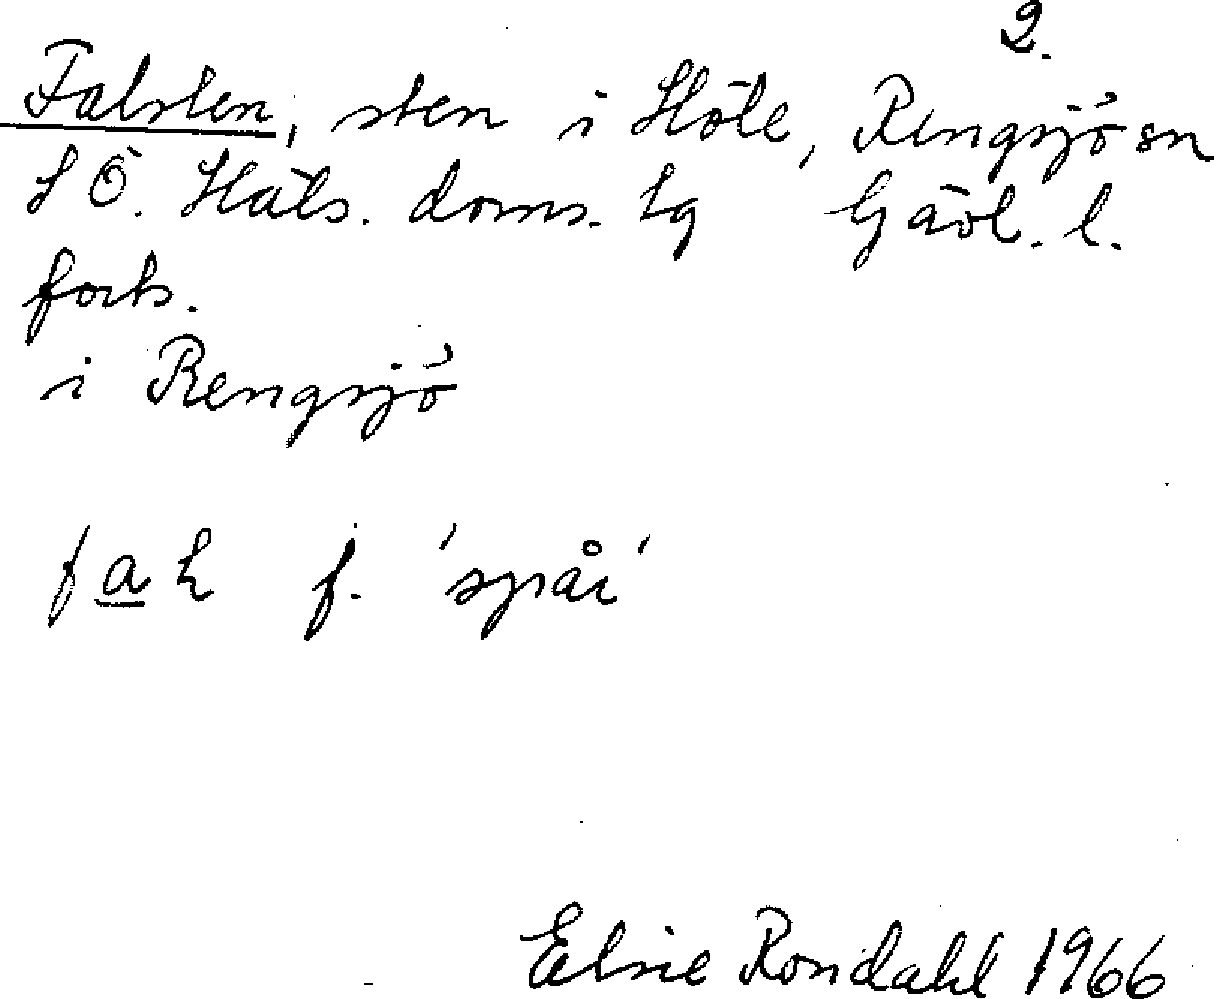 2.
Falsten, sten i Höle, Rengsjö sn
S Ö. Häls. doms. lg Gävl. l.
forts.
i Rengsjö
fal f. 'spår'
Elsie Rondahl 1966